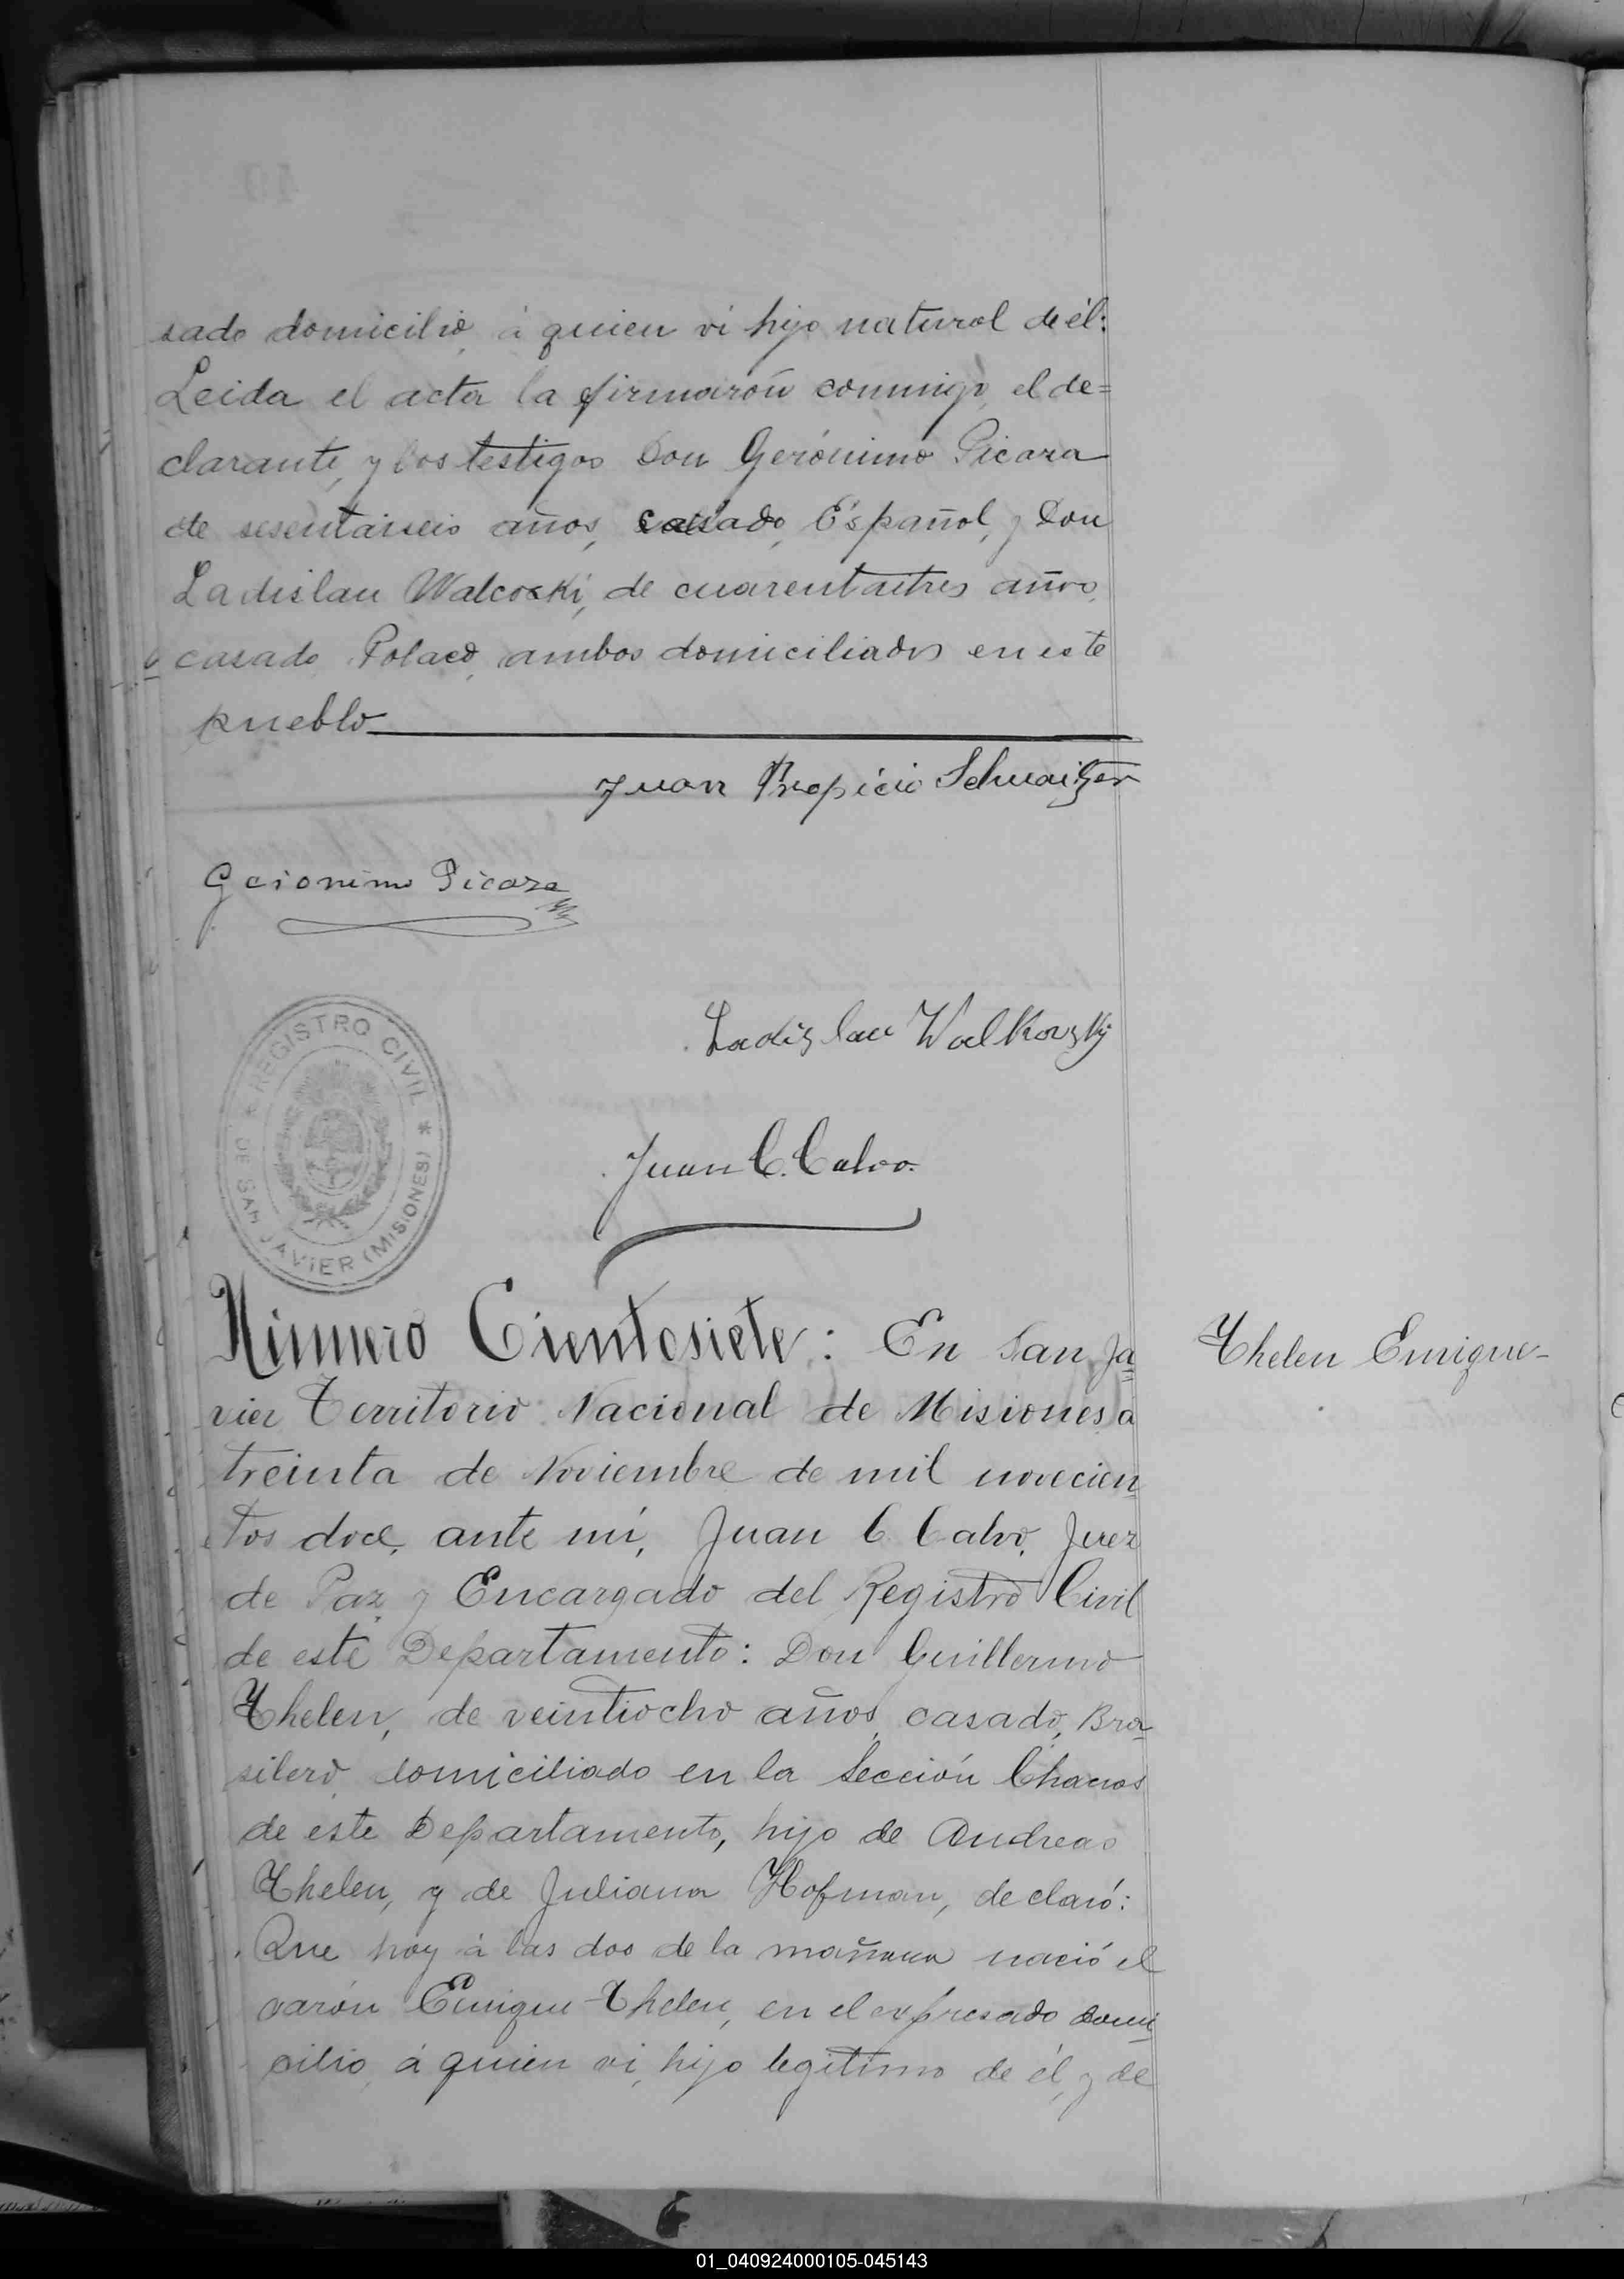 sado domicilio, á quien vi hijo natural de él:
Leida el acta la firmarón conmigo, el de=
clarante, y los testigos Don Gerónimo Picara
de sesentaiseis años, casado, Español, y Don
Ladislau Walcoski, de cuarentaitres años,
casado, Polaco, ambos domiciliados en este
pueblo
Juan Propicio Schwaitzer
Geronimo Picaza
Ladislau Walkovsky
REGISTRO CIVIL
* DE SAN JAVIER (MISIONES) *
Juan C. Calvo.
Número Cientosiete: En San Ja
Thelen Enrique-
vier Territorio Nacional de Misiones, a
treinta de Noviembre de mil novecien
tos doce, ante mí, Juan C. Calvo, Juez
de Paz y Encargado del Registro Civil
de este Departamento: Don Guillermo
Thelen, de veintiocho años, casado, Bra
silero, domiciliado en la Sección Chacras
de este Departamento, hijo de Andreas
Thelen, y de Juliana Hofman, declaró:
Que hoy á las dos de la mañana nació el
varón Enrique Thelen, en el expresado domi
cilio, á quien vi, hijo legitimo de él, y de
01_040924000105-045143